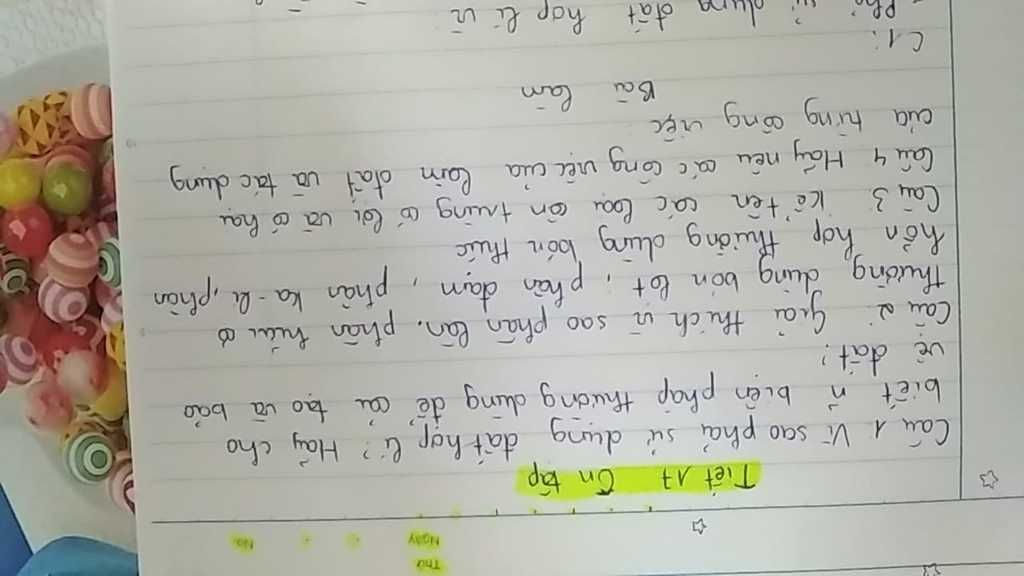 Thứ
Ngày
No.
Tiết 17 Ôn tập
Câu 1 Vì sao phải sử dụng đất hợp lí? Hãy cho
biết n biện pháp thường dùng để cải tạo và bảo
vệ đất?
Câu 2: Giải thích vì sao phân lân, phân hữu cơ
thường dùng bón lót; phân đạm, phân ka-li, phân
hỗn hợp thường dùng bón thúc
Câu 3: Kể tên các loại côn trùng có lợi và có hại
Câu 4 Hãy nêu các công việc của làm đất và tác dụng
của từng công việc
Bài làm
C1:
- Phải sử dụng đất hợp lí vì